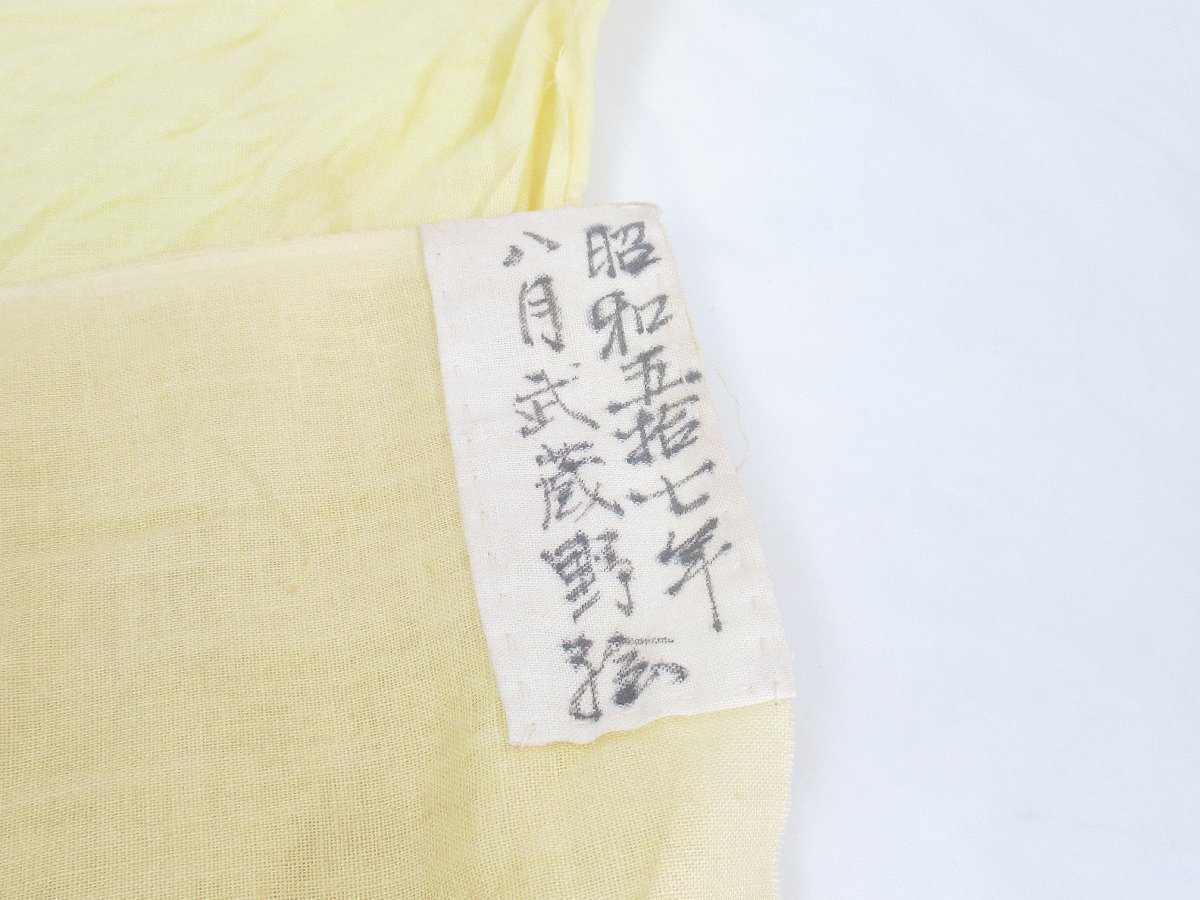 昭和五拾七年
八月武蔵野絵